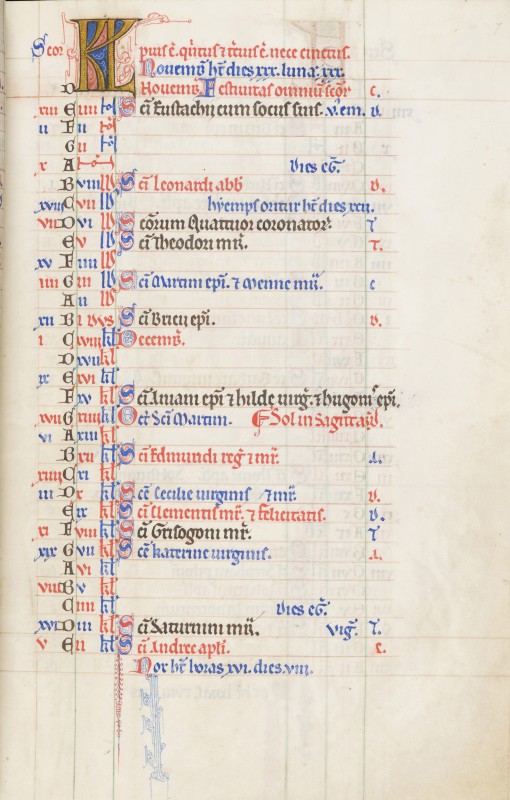 Scor pius ē. quītus & t̄cius ē. nece cinctus.
Nouemb̄ hēt dies xxx. luna. xxx.
D Nouemb̄. Festiuitas omniū scōr c.
xiii E iiii Nō Scī Eustachij cum sociis suis. v. em. d.
ii F iii Nō
G ii Nō
x A Nō Dies eḡ.
B viii Id Scī Leonardi abb̄ d.
xviii C vii Id hyemps oritur hēt dies xcii.
vii D vi Id Scōrum Quattuor coronator. t
E v Id Scī Theodori mr̄. t.
xv F iiii Id
iiii G iii Id Scī Martini ep̄i. & Menne mr̄. c
A ii Id
xii B Idus Scī Bricii ep̄i. d.
i C xviii kl Decemb̄.
D xvii kl
ix E xvi kl
F xv kl Scī Aniani ep̄i & hilde uirḡ. & hugonis ep̄i.
xvii G xiiii kl Oct̄ Scī Martini. Sol in sagitta d.
vi A xiii kl
B xii kl Scī Edmundi reḡ & mr̄.
xiiii C xi kl
iii D x kl Scē Cecilie uirginis & mr̄. d.
E ix kl Scī Clementis mr̄. & felicitatis. d.
xi F viii kl Scī Grisogoni mr̄. t
xix G vii kl Scē katerine uirginis.
A vi kl
viii B v kl
C iiii kl Dies eḡ.
xvi D iii kl Scī Saturnini mr̄. viḡ. t.
v E ii kl Scī Andree ap̄li. c.
Nox hēt horas xvi. dies viii.